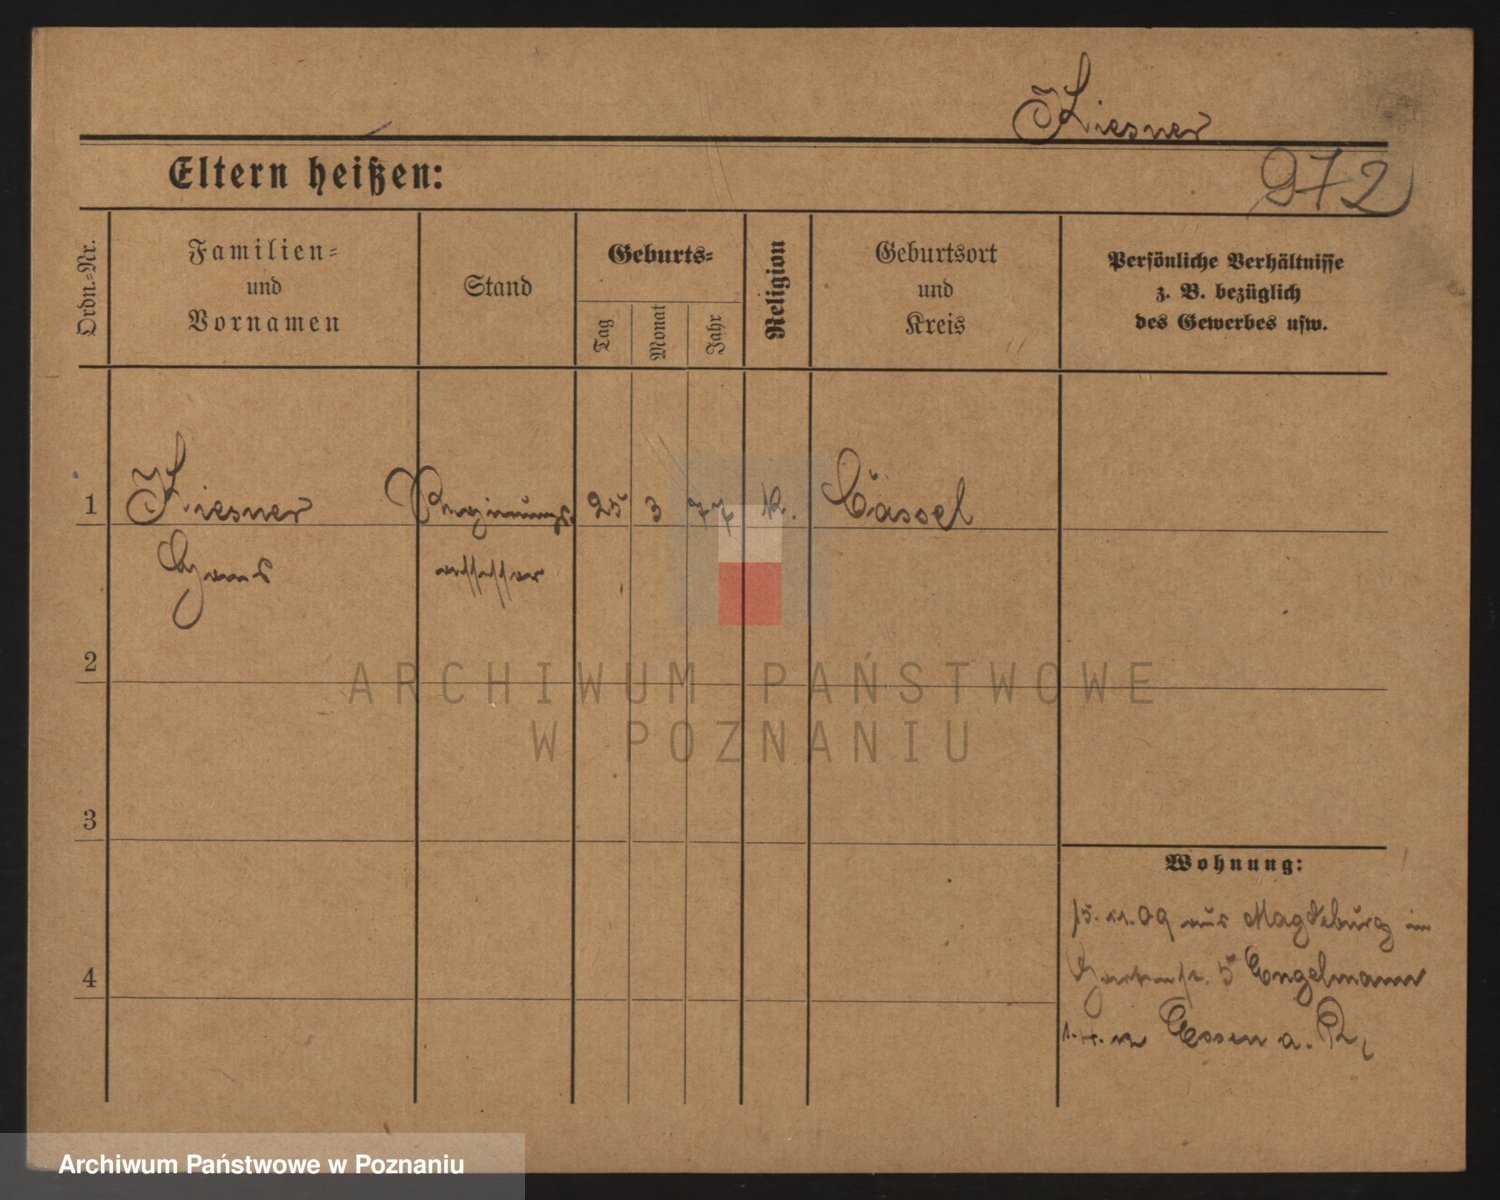 Kiesner
Eltern heißen:
972
Ordn.-Nr.
Familien-
und
Vornamen
Stand
Geburts-
Tag
Monat
Jahr
Religion
Geburtsort
und
Kreis
Persönliche Verhältnisse
z. B. bezüglich
des Gewerbes usw.
1
Kiesner
Regierungs-
25
3
77
K.
Cassel
Hans
assessor
2
ARCHIWUM PAŃSTWOWE
W POZNANIU
3
Wohnung:
15. 11. 09 aus Magdeburg in
Gartenstr. 5 Engelmann
4
n Essen a. R.
Archiwum Państwowe w Poznaniu